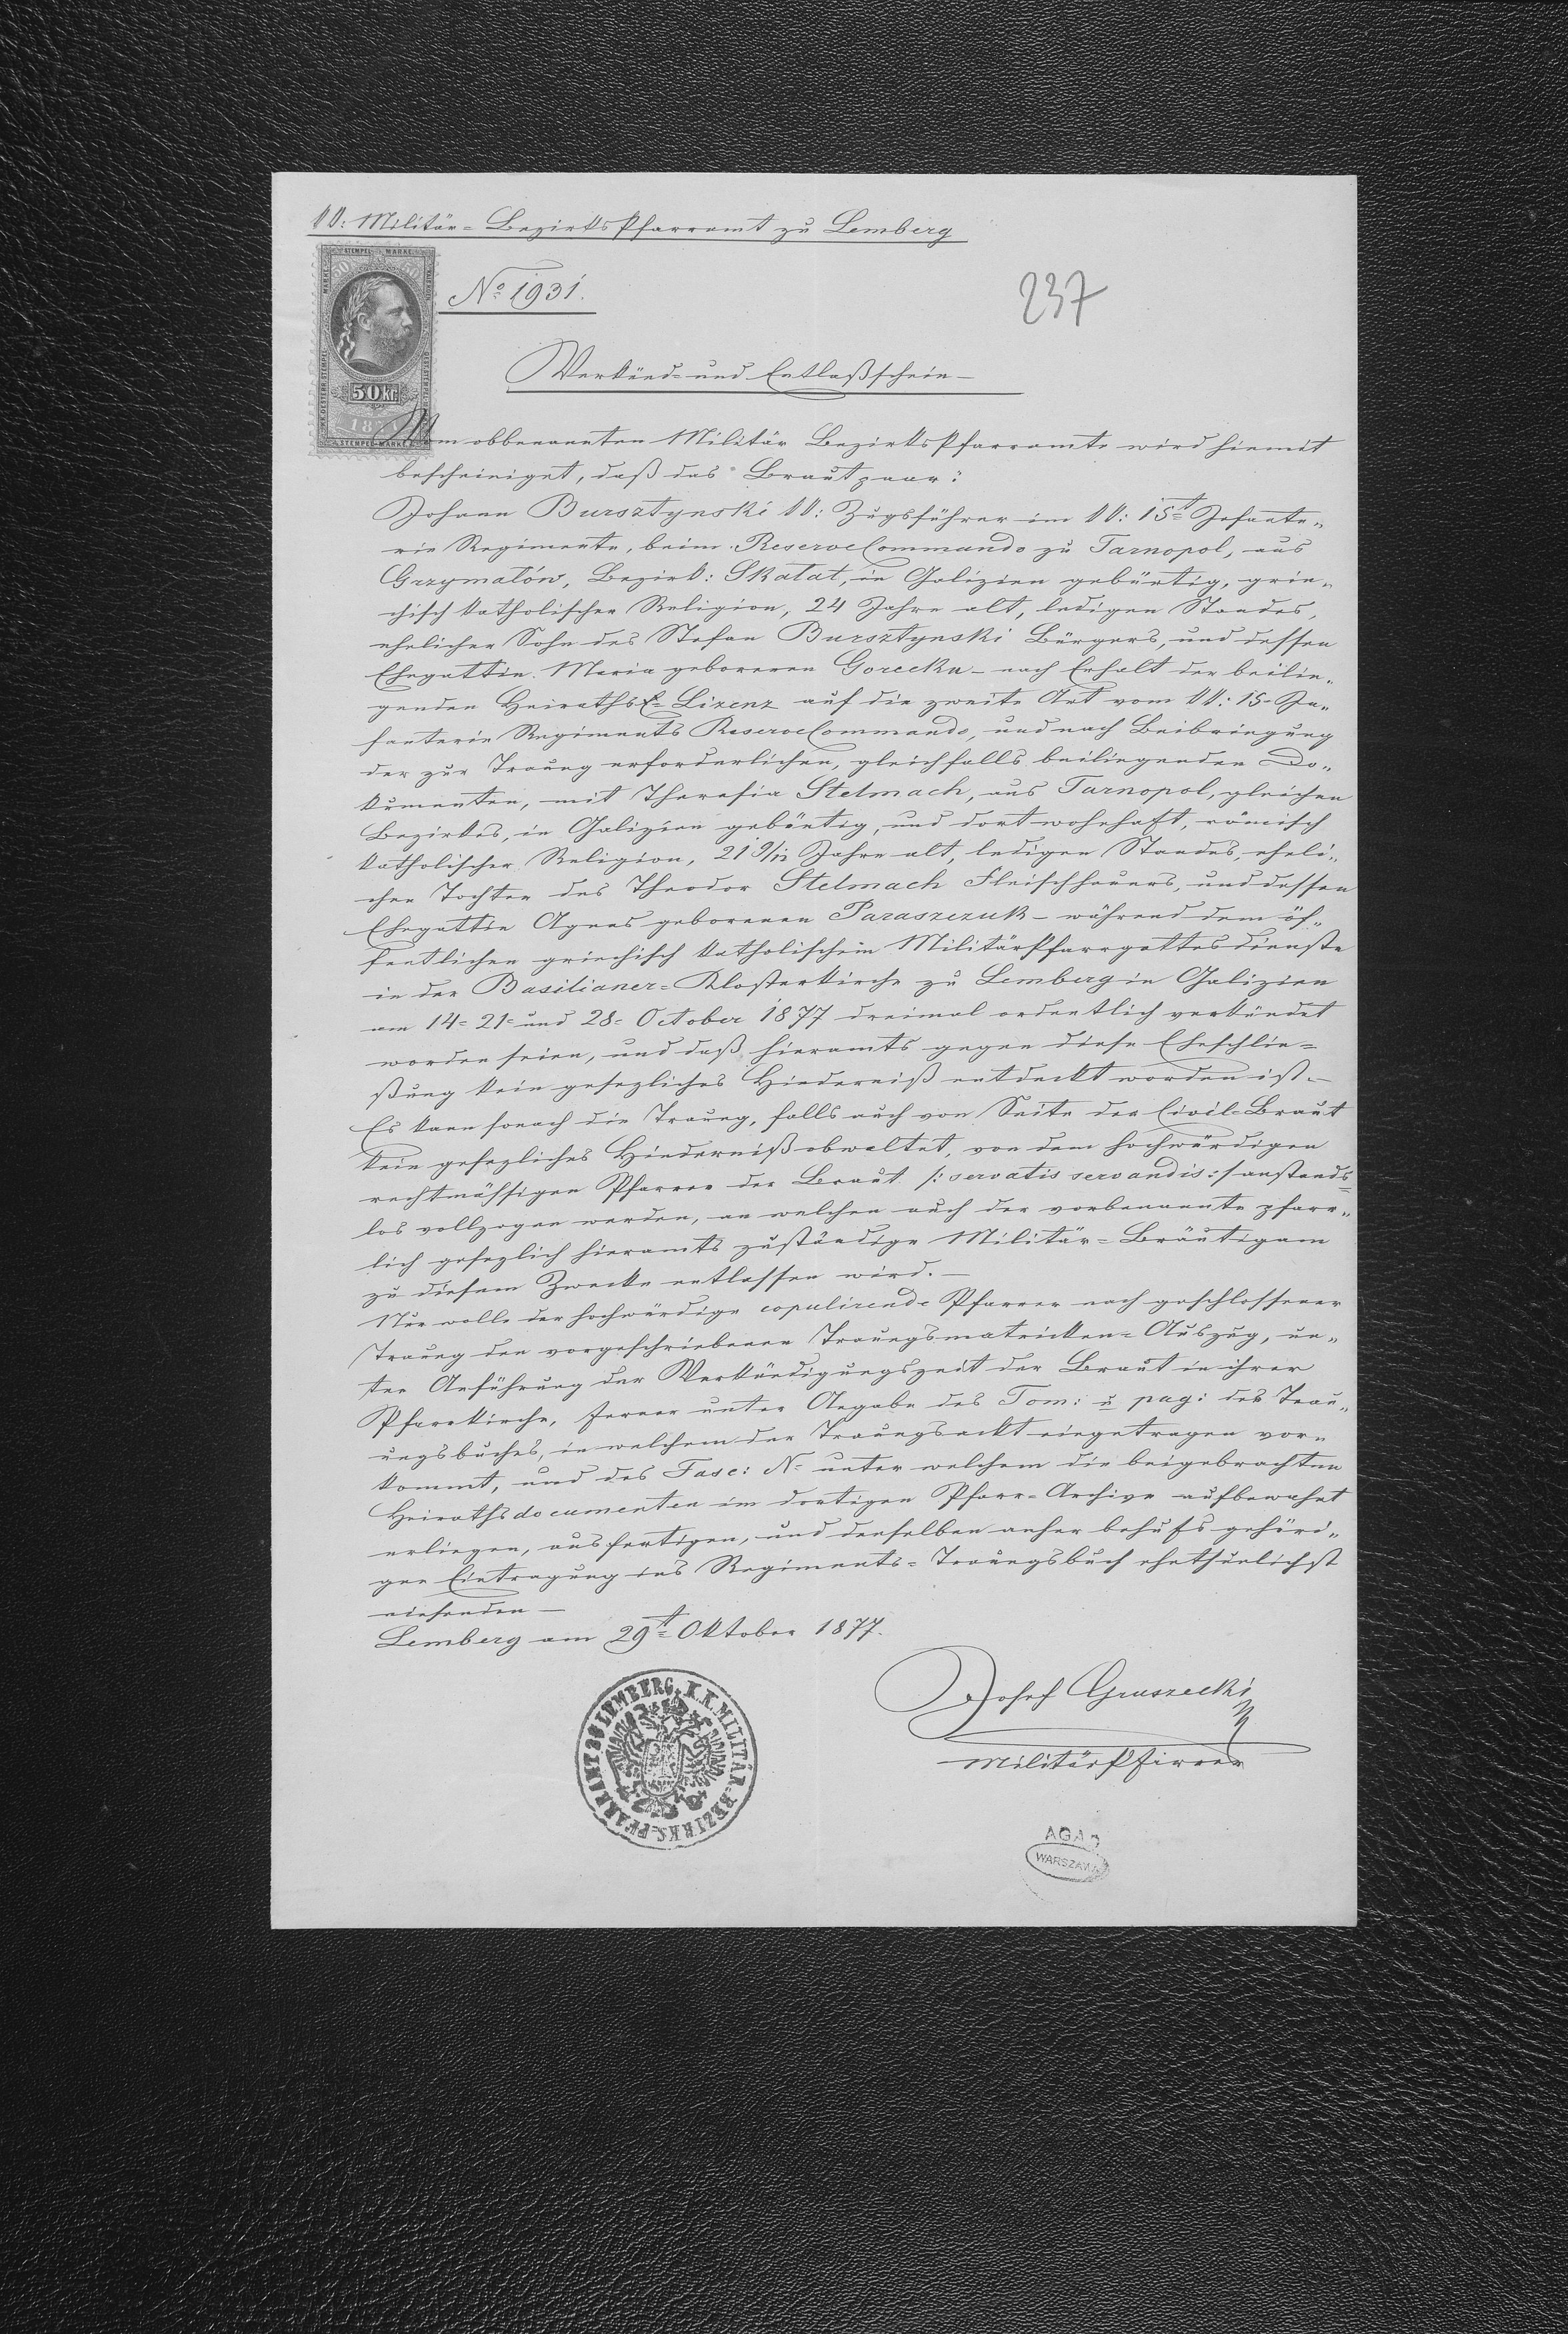 kk: Militär=Bezirks Pfarramt zu Lemberg
STEMPEL MARKE
50 KC
187
STEMPEL-MARKE
No 1931.
237
Verkünd= und Entlaßschein–
Vom obbenannten Militär Bezirks Pfarramte wird hiemit
bescheiniget, daß das Brautpaar:
Johann Bursztynski kk: Zugsführer im kk: 15t Infante„
rie Regimente, beim ReserveCommando zu Tarnopol, aus
Grzymałów, Bezirk: Skałat, in Galizien gebürtig, grie„
chisch katholischer Religion, 24 Jahre alt, ledigen Standes,
ehelicher Sohn des Stefan Bursztynski Bürgers, und dessen
Ehegattin Maria geborenen Gorecka – nach Erhalt der beilie„
genden Heiraths Lizenz auf die zweite Art vom kk: 15– In„
fanterie Regiments ReserveCommando, und nach Beibringung
der zur Trauung erforderlichen, gleichfalls beiliegenden Do„
kumenten, mit Theresia Stelmach, aus Tarnopol, gleichen
Bezirkes, in Galizien gebürtig, und dort wohnhaft, römisch
katholischer Religion, 21 9/12 Jahre alt, ledigen Standes, eheli„
chen Tochter des Theodor Stelmach Fleischhauers, und dessen
Ehegattin Agnes geborenen Paraszczuk – während dem öf„
fentlichen griechisch katholischen Militär Pfarrgottesdienste
in der Basilianer=Klosterkirche zu Lemberg in Galizien
am 14– 21– und 28– October 1877 dreimal ordentlich verkündet
worden seien, und daß hieramts gegen diese Eheschlie=
ßung kein gesezliches Hinderniß entdeckt worden ist.–
Es kann sonach die Trauung, falls auch von Seite der Civil=Braut
kein gesezliches Hinderniß obwaltet, von dem hochwürdigen
rechtmässigen Pfarrer der Braut /: servatis servandis :/ anstands=
los vollzogen werden, an welchen auch der vorbenannte pfarr„
lich gesezlich hieramts zuständige Militär=Bräutigam
zu diesem Zwecke entlassen wird.–
Nur wolle der hochwürdige copulirende Pfarrer nach geschlossener
Trauung den vorgeschriebenen Trauungsmatricken=Auszug, un„
ter Anführung der Verkündigungszeit der Braut in ihrer
Pfarrkirche, ferner unter Angabe des Tom: u pag: des Trau„
ungsbuches, in welchem der Trauungsackt eingetragen vor„
kommt, und des Fasc: No unter welchem die beigebrachten
Heirathsdocumenten im dortigen Pfarr=Archive aufbewahrt
erliegen, ausfertigen, und denselben anher behufs gehöri„
gen Eintragung ins Regiments=Trauungsbuch ehethunlichst
einsenden –
Lemberg am 29t Oktober 1877.
Josef Gruszecki
MilitärPfarrer
K.K. MILITÄR-BEZIRKS-PFARRAMT ZU LEMBERG
AGAD
WARSZAWA